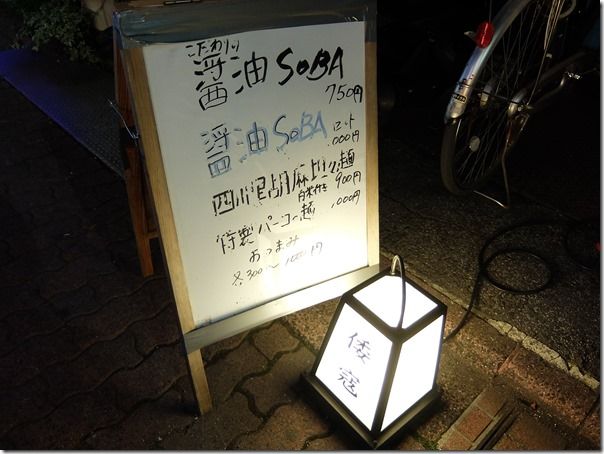 こだわり
醤油 SOBA
750円
醤油 SOBA セット
1000円
四川風胡麻担々麺
白米付き 900円
特製パーコー麺 1000円
おつまみ
各300〜1000円
倭寇